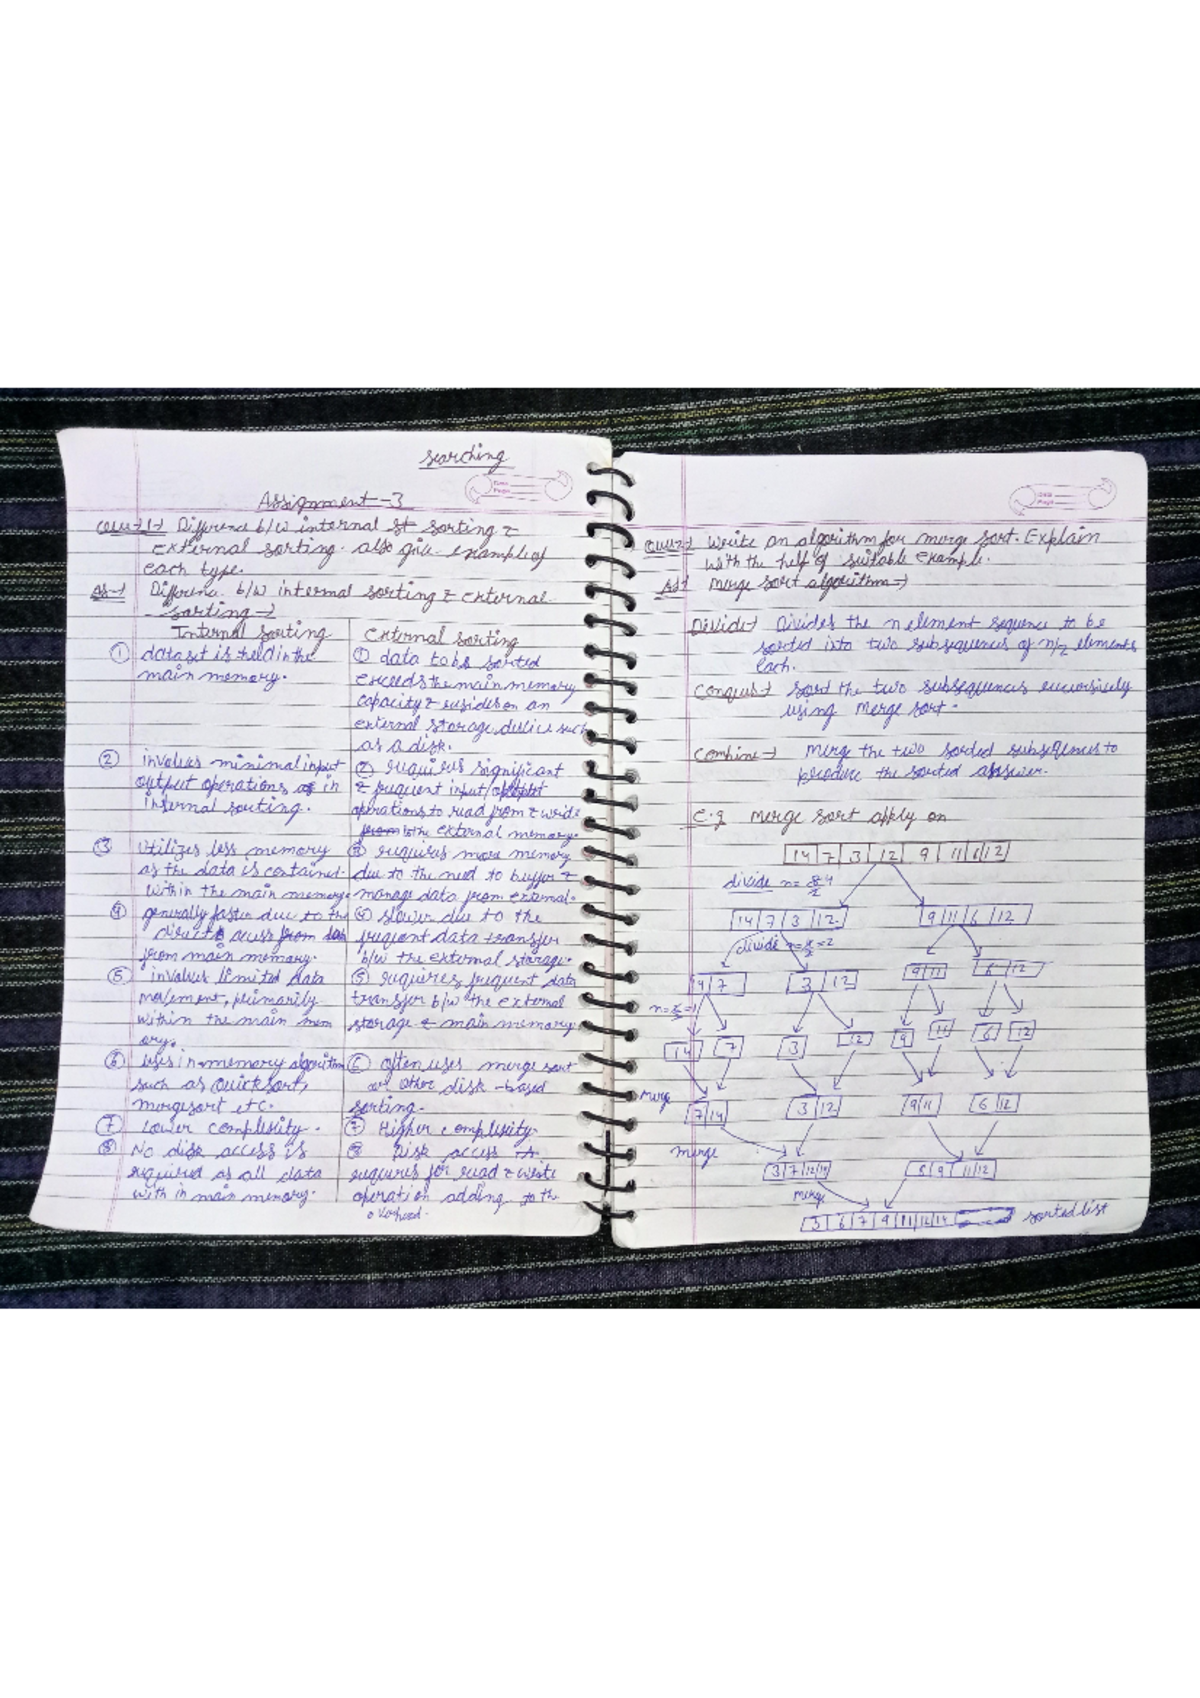 Searching
Assignment-3
Ques-1→ Difference b/w internal sorting &
external sorting. also give example of
each type.
As-1 Difference b/w internal sorting & external
sorting→
Internal sorting
① dataset is held in the
main memory.
② involves minimal input
output operations in
internal sorting.
③ utilizes less memory
as the data is contained
within the main memory.
④ generally faster due to the
direct access from
from main memory.
⑤ involves limited data
movement, primarily
within the main mem
ory.
⑥ uses in-memory algorithm
such as Quicksort,
mergesort etc.
⑦ Lower complexity.
⑧ No disk access is
required as all data
with in main memory.
External sorting
① data to be sorted
exceeds the main memory
capacity & resides on an
external storage device such
as a disk.
② requires significant
& frequent input/output
operations to read from & write
the external memory.
③ requires more memory
due to the need to buffer &
manage data from external.
④ slower due to the
frequent data transfer
b/w the external storage.
⑤ requires frequent data
transfer b/w the external
storage & main memory
⑥ often uses merge sort
or other disk-based
sorting.
⑦ Higher complexity.
⑧ Disk access is
requires for read & write
operation adding to the
overhead.
Date
Page
Date
Page
Ques2→ Write an algorithm for merge sort. Explain
with the help of suitable example.
As1 Merge sort algorithm→
Divide→ Divides the n element sequence to be
sorted into two subsequences of n/2 elements
each.
Conquer→ Sort the two subsequences recursively
using merge sort.
Combine→ Merge the two sorted subsequences to
produce the sorted answer.
E.g merge sort apply on
14 7 3 12 9 11 6 12
divide n=8/2 4
14 7 3 12 9 11 6 12
divide n=4/2=2
14 7 3 12 9 11 6 12
14 7 3 12 9 11 6 12
merge
7 14 3 12 9 11 6 12
merge
3 7 12 14 6 9 11 12
merge
3 6 7 9 11 12 14 sorted list